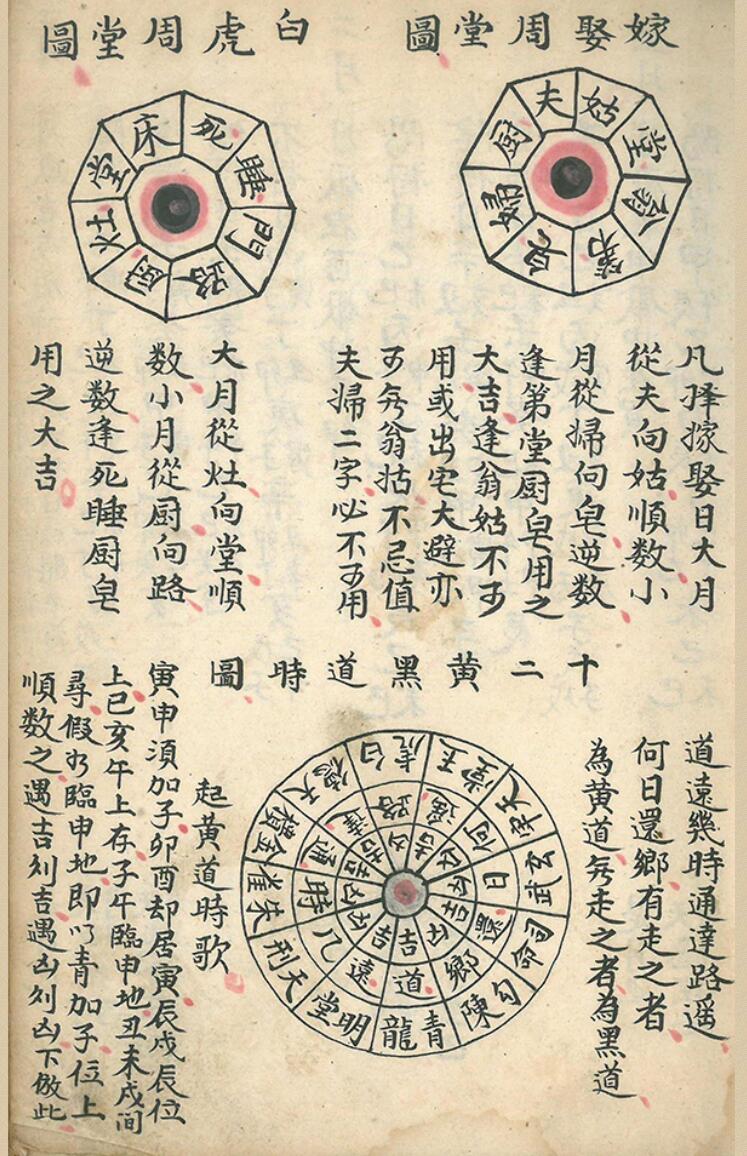 嫁娶周堂圖
夫
姑
堂
翁
第
皂
婦
厨
凡择嫁娶日大月
從夫向姑順数小
月從婦向皂逆数
逢第堂厨皂用之
大吉逢翁姑不可
用或出宅大避亦
可無翁姑不忌值
夫婦二字必不可用
白虎周堂圖
床
死
睡
門
路
厨
灶
堂
大月從灶向堂順
数小月從厨向路
逆数逢死睡厨皂
用之大吉
十二黄黑道時圖
道遠幾時通達路遥
何日還鄉有走之者
為黄道無走之者為黑道
青龍
明堂
天刑
朱雀
金櫃
天德
白虎
玉堂
天牢
玄武
司命
勾陳
道
遠
几
時
通
達
路
遥
何
日
還
鄉
吉
吉
凶
凶
吉
吉
凶
吉
凶
凶
吉
凶
起黄道時歌
寅申須加子卯酉却居寅辰戌辰位
上巳亥午上存子午臨申地丑未戌間
尋假如臨申地即以青加子位上
順数之遇吉则吉遇凶则凶下倣此